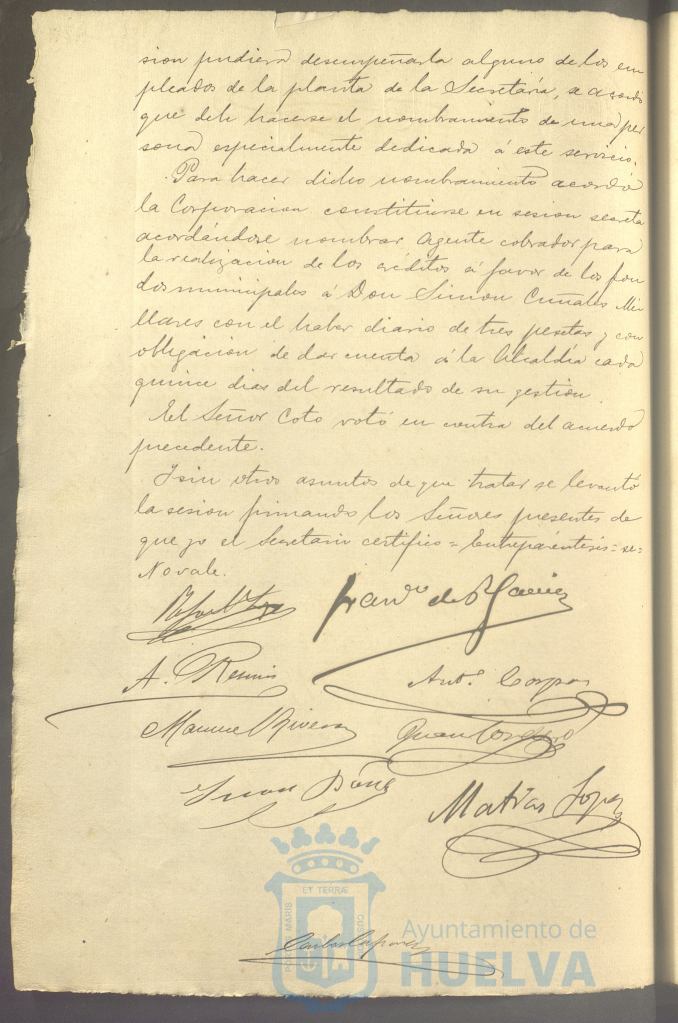 sion pudiera desempeñarla alguno de los em
pleados de la planta de la Secretaría, se acordó
que debe hacerse el nombramiento de una per
sona especialmente dedicada á este servicio.
Para hacer dicho nombramiento acordó
la Corporacion constituirse en sesion secreta
acordándose nombrar Agente cobrador para
la realizacion de los créditos á favor de los fon
dos municipales á Don Simon Cuñales Mi
llares con el haber diario de tres pesetas y con
obligacion de dar cuenta á la Alcaldía cada
quince dias del resultado de su gestion.
El Señor Coto votó en contra del acuerdo
precedente.
Y sin otros asuntos de que tratar se levantó
la sesion firmando los Señores presentes de
que yo el Secretario certifico = Entreparéntesis = se =
No vale.
A.
Ant.º Corpas
Manuel Rivera
Juan
Matías Lopez
ET TERRÆ
PORTUS MARIS
CUSTODIA
Ayuntamiento de
HUELVA